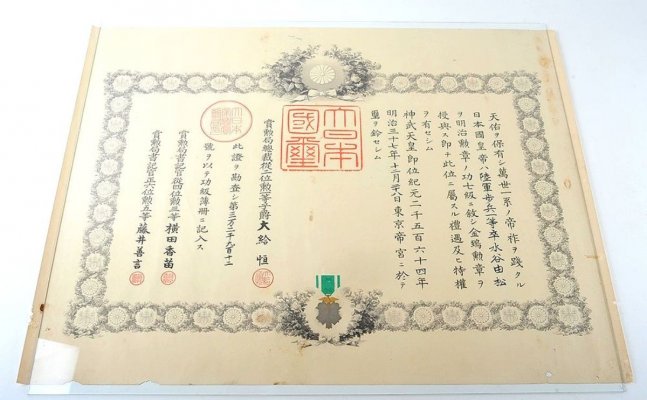 天佑ヲ保有シ萬世一系ノ帝祚ヲ踐タル
日本國皇帝ハ陸軍歩兵一等卒水谷由松
ヲ明治勲章ノ功七級ニ敘シ金鵄勲章ヲ
授與ス即チ此位ニ屬スル禮遇及ヒ特權
ヲ有セシム
神武天皇即位紀元二千五百六十四年
明治三十七年十二月廿八日東京帝宮ニ於テ
璽ヲ鈐セシム
大日本
國璽
賞勲局總裁從二位勲一等子爵大給恒
此證ヲ勘査シ第三万二千九百十二
號ヲ以テ功級簿冊ニ記入ス
賞勲局書記官從四位勲三等横田香苗
賞勲局書記官正六位勲五等藤井善言